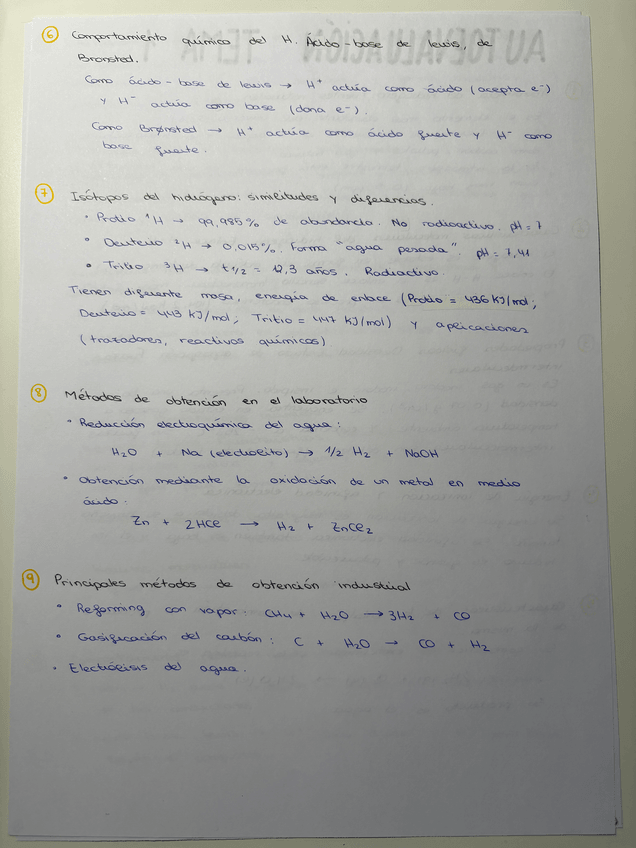 6 Comportamiento químico del H. Ácido-base de Lewis, de
Bronsted.
Como ácido-base de Lewis → H⁺ actúa como ácido (acepta e⁻)
y H⁻ actúa como base (dona e⁻).
Como Brønsted → H⁺ actúa como ácido fuerte y H⁻ como
base fuerte.
7 Isótopos del hidrógeno: similitudes y diferencias.
• Protio ¹H → 99,985% de abundancia. No radioactivo. pH = 7
• Deuterio ²H → 0,015%. Forma "agua pesada". pH = 7,41
• Tritio ³H → t1/2 = 12,3 años. Radiactivo.
Tienen diferente masa, energía de enlace (Protio = 436 kJ/mol;
Deuterio = 443 kJ/mol; Tritio = 447 kJ/mol) y aplicaciones
(trazadores, reactivos químicos)
8 Métodos de obtención en el laboratorio
• Reducción electroquímica del agua:
H₂O + Na (electrolito) → 1/2 H₂ + NaOH
• Obtención mediante la oxidación de un metal en medio
ácido.
Zn + 2HCl → H₂ + ZnCl₂
9 Principales métodos de obtención industrial
• Reforming con vapor: CH₄ + H₂O → 3H₂ + CO
• Gasificación del carbón: C + H₂O → CO + H₂
• Electrólisis del agua.